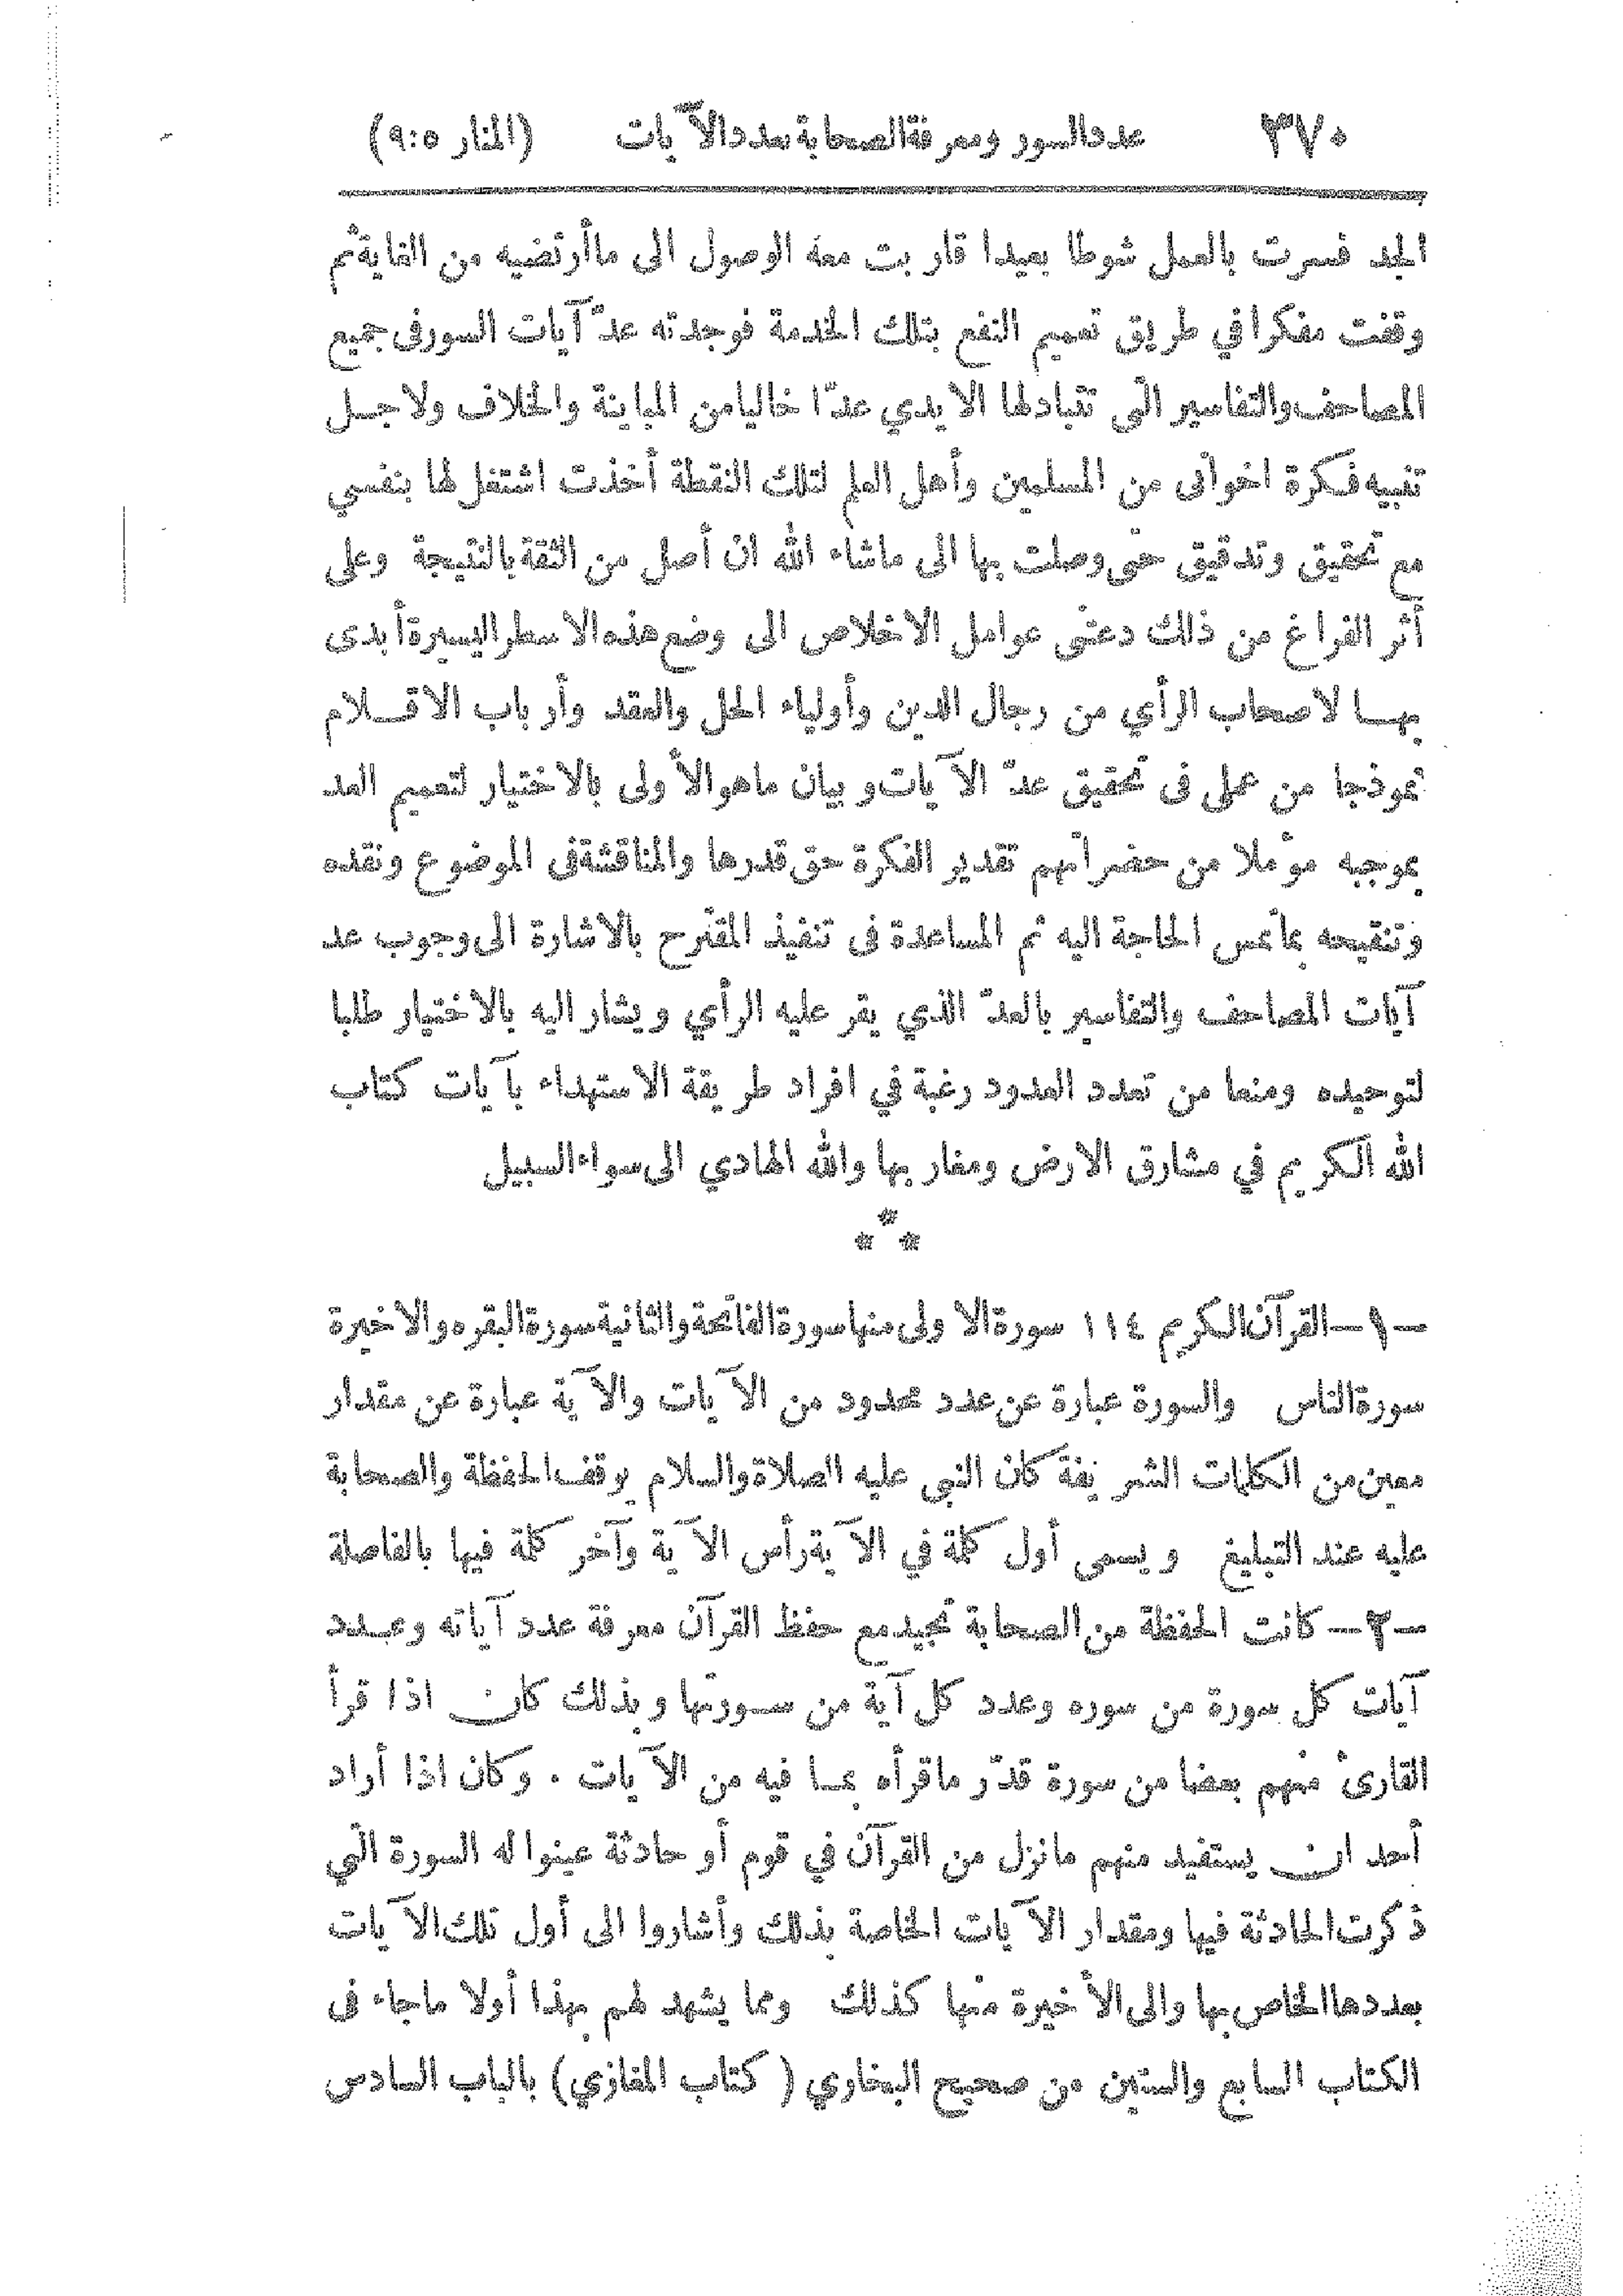 ٣٧٠ عدد السور ومعرفة الصحابة بعدد الآيات (المنار ٩:٥)
الجد فسرت بالعمل شوطا بعيدا قاربت معه الوصول الى ما أرتضيه من الغاية ثم
وقفت مفكرا في طريق تعميم النفع بتلك الخدمة فوجدته عدّ آيات السور فى جميع
المصاحف والتفاسير التي تتبادلها الايدي عدّا خاليا من المباينة والخلاف ولاجل
تنبيه فكرة اخوانى من المسلمين وأهل العلم لتلك النقطة أخذت اشتغل لها بنفسي
مع تحقيق وتدقيق حتى وصلت بها الى ماشاء الله ان أصل من الثقة بالنتيجة وعلى
أثر الفراغ من ذلك دعتنى عوامل الاخلاص الى وضع هذه الاسطر اليسيرة أبدى
بها لاصحاب الرأي من رجال الدين وأولياء الحل والعقد وأرباب الاقلام
نموذجا من عملى فى تحقيق عدّ الآيات وبيان ماهو الأولى بالاختيار لتعميم العد
بموجبه مؤملا من حضراتهم تقدير الفكرة حق قدرها والمناقشة فى الموضوع ونقده
وتنقيحه بما تمس الحاجة اليه ثم المساعدة فى تنفيذ المقترح بالاشارة الى وجوب عد
آيات المصاحف والتفاسير بالعدّ الذي يقر عليه الرأي ويشار اليه بالاختيار طلبا
لتوحيده ومنعا من تعدد العدود رغبة في افراد طريقة الاستهداء بآيات كتاب
الله الكريم في مشارق الارض ومغاربها والله الهادي الى سواء السبيل
* * *
—١— القرآن الكريم ١١٤ سورة الاولى منها سورة الفاتحة والثانية سورة البقره والاخيرة
سورة الناس والسورة عبارة عن عدد محدود من الآيات والآية عبارة عن مقدار
معين من الكلمات الشريفة كان النبي عليه الصلاة والسلام يوقف الحفظة والصحابة
عليه عند التبليغ ويسمى أول كلمة في الآية رأس الآية وآخر كلمة فيها بالفاصلة
—٢— كانت الحفظة من الصحابة تجيد مع حفظ القرآن معرفة عدد آياته وعدد
آيات كل سورة من سوره وعدد كل آية من سورتها وبذلك كان اذا قرأ
القارئ منهم بعضا من سورة قدّر ماقرأه بما فيه من الآيات . وكان اذا أراد
أحد ان يستفيد منهم مانزل من القرآن في قوم أو حادثة عينوا له السورة التي
ذكرت الحادثة فيها ومقدار الآيات الخاصة بذلك وأشاروا الى أول تلك الآيات
بعددها الخاص بها والى الأخيرة منها كذلك ومما يشهد لهم بهذا أولا ماجاء فى
الكتاب السابع والستين من صحيح البخاري ( كتاب المغازي) بالباب السادس